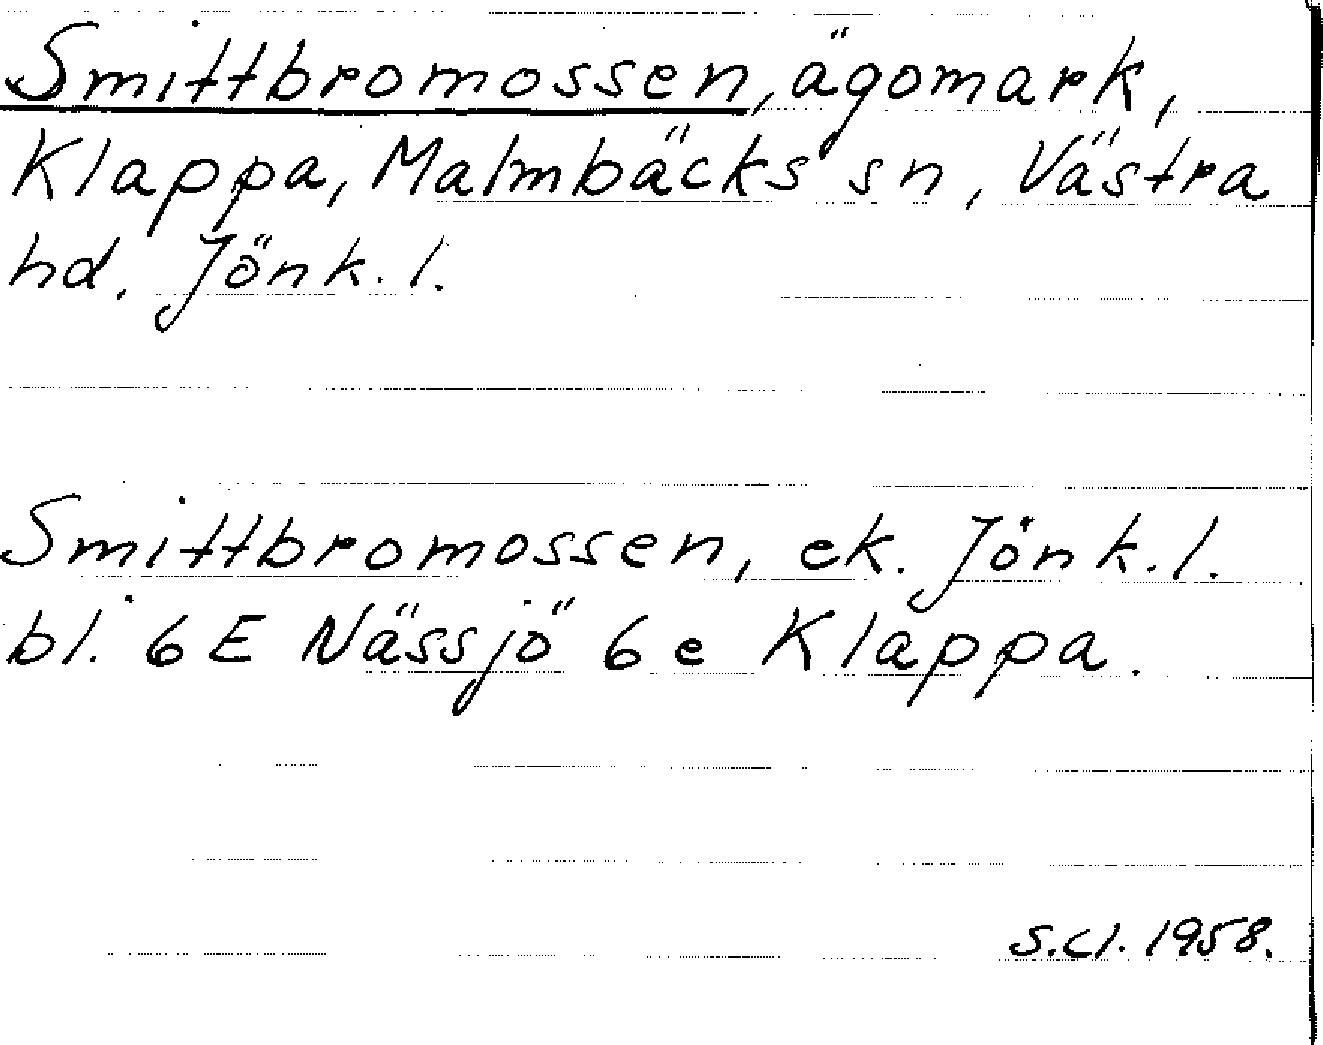 Smittbromossen, ägomark,
Klappa, Malmbäcks sn, Västra
hd. Jönk. l.
Smittbromossen, ek. Jönk. l.
bl. 6 E Nässjö 6 e Klappa.
S.Cl. 1958.